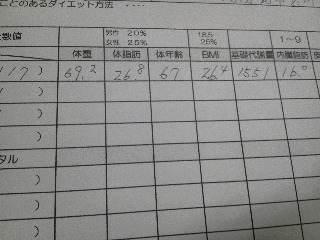 ことのあるダイエット方法 ‥‥
数値
男性 20%
女性 25%
18.5
25%
1〜9
体重 体脂肪 体年齢 BMI 基礎代謝量 内臓脂肪
/17 ) 69.2 26.8 67 26.4 1551 16.0
)
)
)
タル
)
)